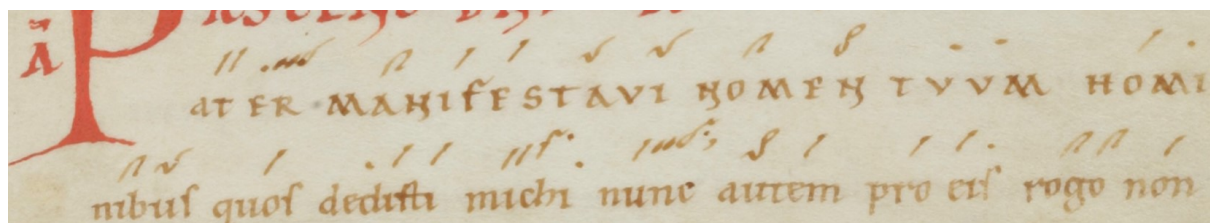 PATER MANIFESTAVI NOMEN TVVM HOMI
nibus quos dedisti michi nunc autem pro eis rogo non